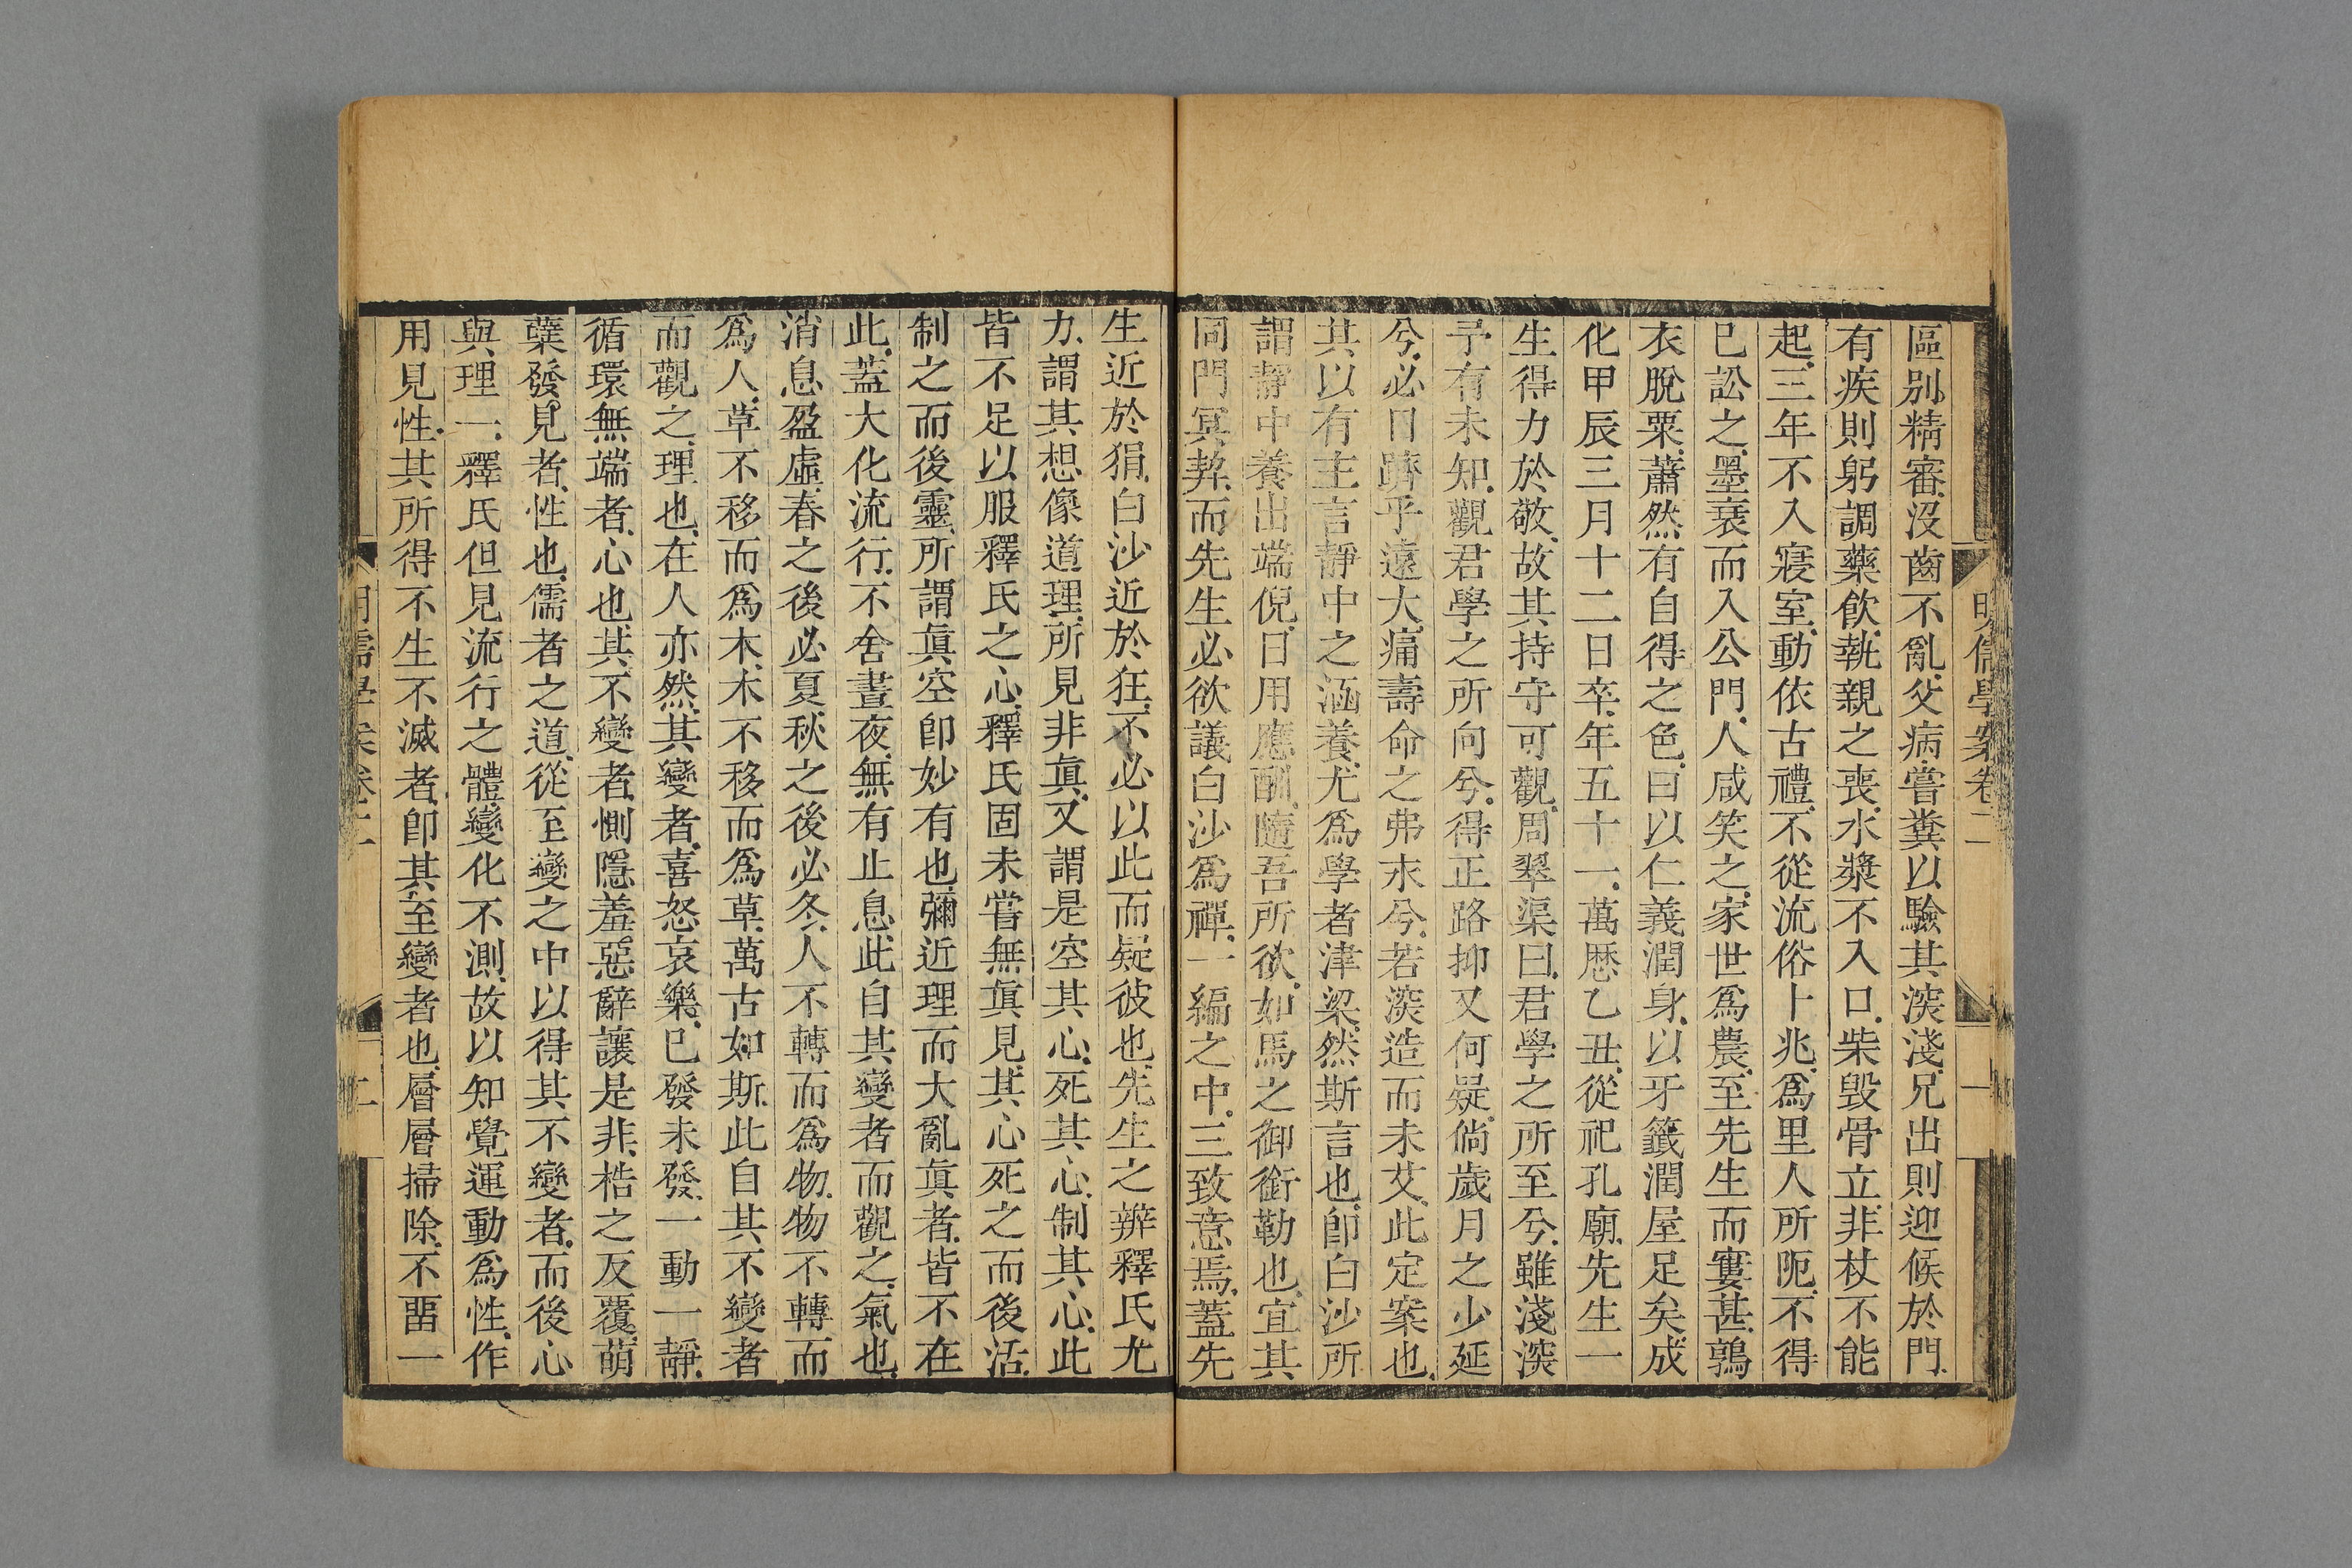 明儒學案卷二
一
區别精審.沒齒不亂.父病.嘗糞以驗其深淺.兄出則迎候於門.
有疾則躬調藥飮.執親之喪.水漿不入口.柴毀骨立.非杖不能
起.三年不入寢室.動依古禮.不從流俗卜兆.爲里人所阨.不得
已訟之.墨衰而入公門.人咸笑之.家世爲農.至先生而窶甚.鶉
衣脫粟.蕭然有自得之色.曰以仁義潤身.以牙籤潤屋足矣.成
化甲辰三月十二日卒.年五十一.萬厯乙丑.從祀孔廟.先生一
生得力於敬.故其持守可觀.周翠渠曰.君學之所至兮.雖淺深
予有未知.觀君學之所向兮.得正路抑又何疑.倘歲月之少延
兮.必日躋乎遠大.痛壽命之弗永兮.若深造而未艾.此定案也.
其以有主言靜中之涵養.尤爲學者津梁.然斯言也.卽白沙所
謂靜中養出端倪.日用應酬.隨吾所欲.如馬之御銜勒也.宜其
同門冥契.而先生必欲議白沙爲禪.一編之中.三致意焉.蓋先
生近於狷.白沙近於狂.不必以此而疑彼也.先生之辨釋氏尤
力.謂其想像道理.所見非眞.又謂是空其心.死其心.制其心.此
皆不足以服釋氏之心.釋氏固未嘗無眞見.其心死之而後活.
制之而後靈.所謂眞空卽妙有也.彌近理而大亂眞者.皆不在
此.蓋大化流行.不舍晝夜.無有止息.此自其變者而觀之.氣也.
消息盈虛.春之後必夏.秋之後必冬.人不轉而爲物.物不轉而
爲人.草不移而爲木.木不移而爲草.萬古如斯.此自其不變者
而觀之.理也.在人亦然.其變者.喜怒哀樂.已發未發.一動一靜.
循環無端者.心也.其不變者.惻隱羞惡辭讓是非.梏之反覆.萌
蘖發見者.性也.儒者之道.從至變之中.以得其不變者.而後心
與理一.釋氏但見流行之體.變化不測.故以知覺運動爲性.作
用見性.其所得不生不滅者.卽其至變者也.層層掃除.不畱一
明儒學案卷二
二